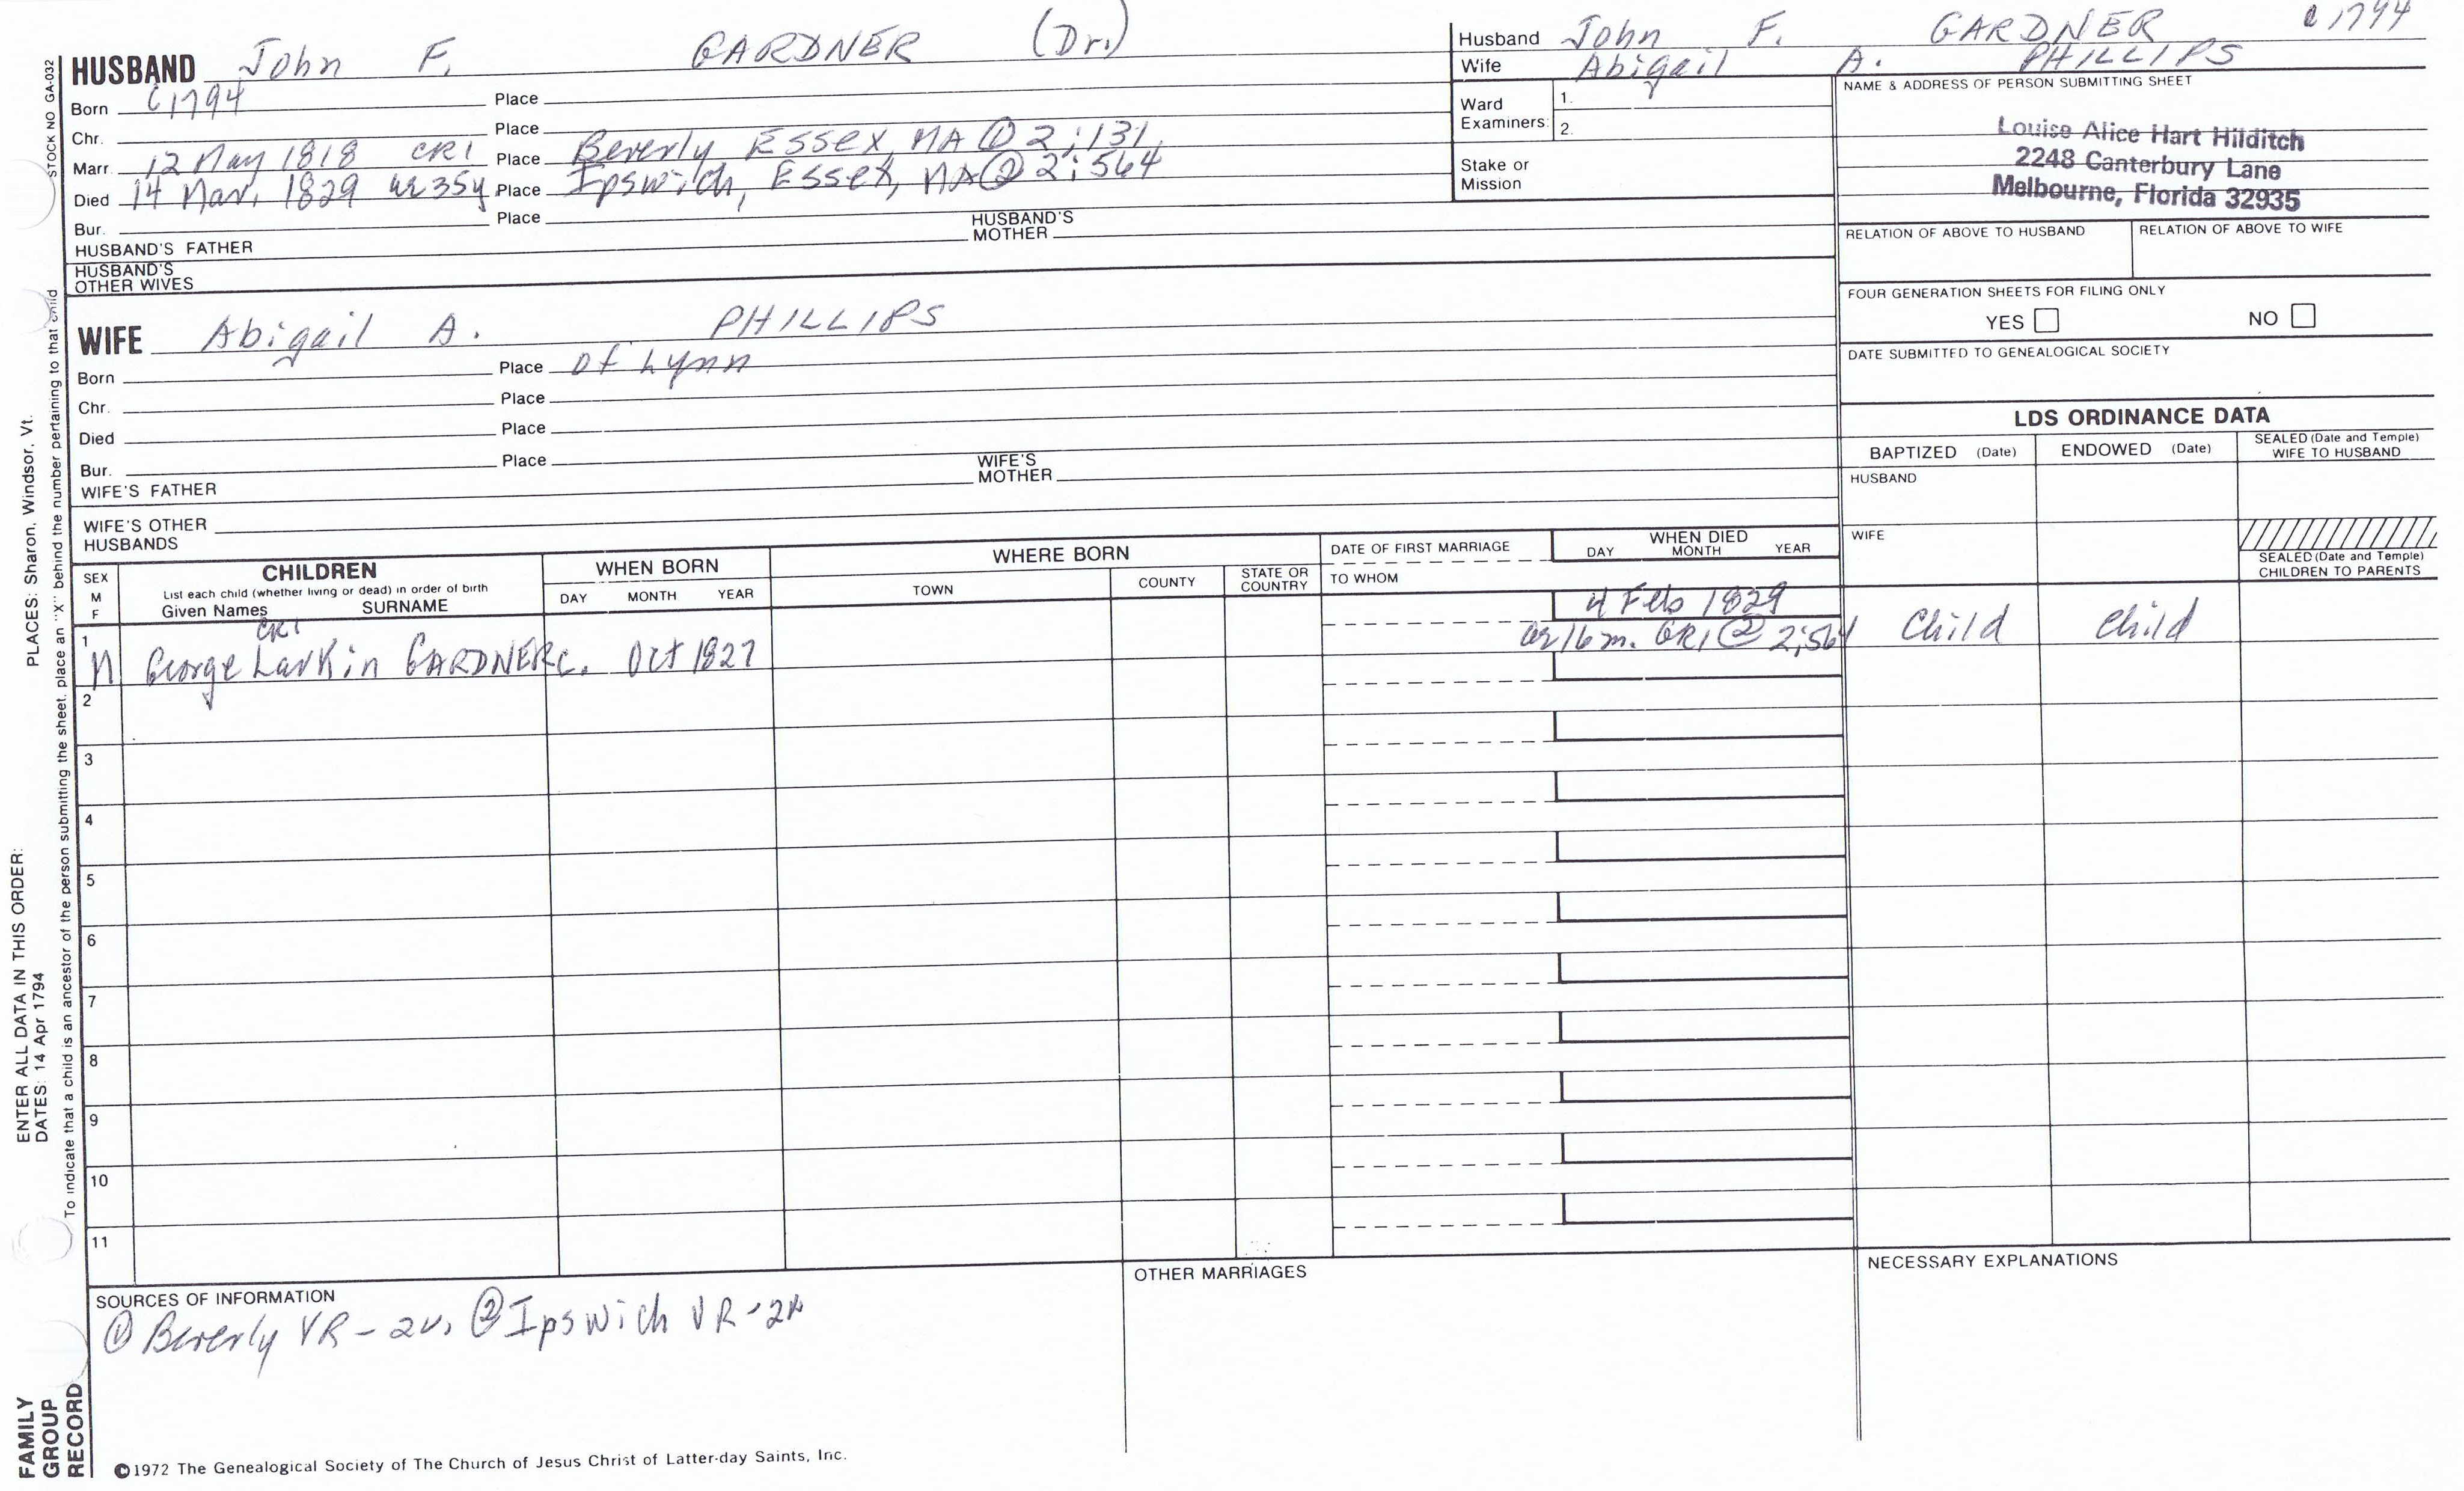 HUSBAND John F. GARDNER (Dr.)
Born C1794 Place
Chr. Place
Marr. 12 May 1818 CR1 Place Beverly Essex, MA ① 2:131
Died 14 Mar. 1829 ae 35y Place Ipswich, Essex, MA ② 2:564
Bur. Place
HUSBAND'S FATHER HUSBAND'S MOTHER
HUSBAND'S OTHER WIVES
Husband John F. GARDNER C1794
Wife Abigail A. PHILLIPS
Ward Examiners: 1.
2.
Stake or Mission
NAME & ADDRESS OF PERSON SUBMITTING SHEET
Louise Alice Hart Hilditch
2248 Canterbury Lane
Melbourne, Florida 32935
RELATION OF ABOVE TO HUSBAND RELATION OF ABOVE TO WIFE
FOUR GENERATION SHEETS FOR FILING ONLY
YES NO
DATE SUBMITTED TO GENEALOGICAL SOCIETY
WIFE Abigail A. PHILLIPS
Born Place of Lynn
Chr. Place
Died Place
Bur. Place
WIFE'S FATHER WIFE'S MOTHER
WIFE'S OTHER HUSBANDS
LDS ORDINANCE DATA
BAPTIZED (Date) ENDOWED (Date) SEALED (Date and Temple) WIFE TO HUSBAND
HUSBAND
WIFE
SEALED (Date and Temple) CHILDREN TO PARENTS
SEX M F
CHILDREN
List each child (whether living or dead) in order of birth
Given Names SURNAME
WHEN BORN
DAY MONTH YEAR
WHERE BORN
TOWN COUNTY STATE OR COUNTRY
DATE OF FIRST MARRIAGE
TO WHOM
WHEN DIED
DAY MONTH YEAR
4 Feb 1829
1 CR1 ae 16 m. GR1 ② 2:564 Child Child
M George Larkin GARDNER c. Oct 1827
2
3
4
5
6
7
8
9
10
11
SOURCES OF INFORMATION
① Beverly VR - 2v. ② Ipswich VR - 2v
OTHER MARRIAGES
NECESSARY EXPLANATIONS
©1972 The Genealogical Society of The Church of Jesus Christ of Latter-day Saints, Inc.
STOCK NO GA-032
To indicate that a child is an ancestor of the person submitting the sheet, place an "X" behind the number pertaining to that child
ENTER ALL DATA IN THIS ORDER:
DATES: 14 Apr 1794
PLACES: Sharon, Windsor, Vt.
FAMILY
GROUP
RECORD